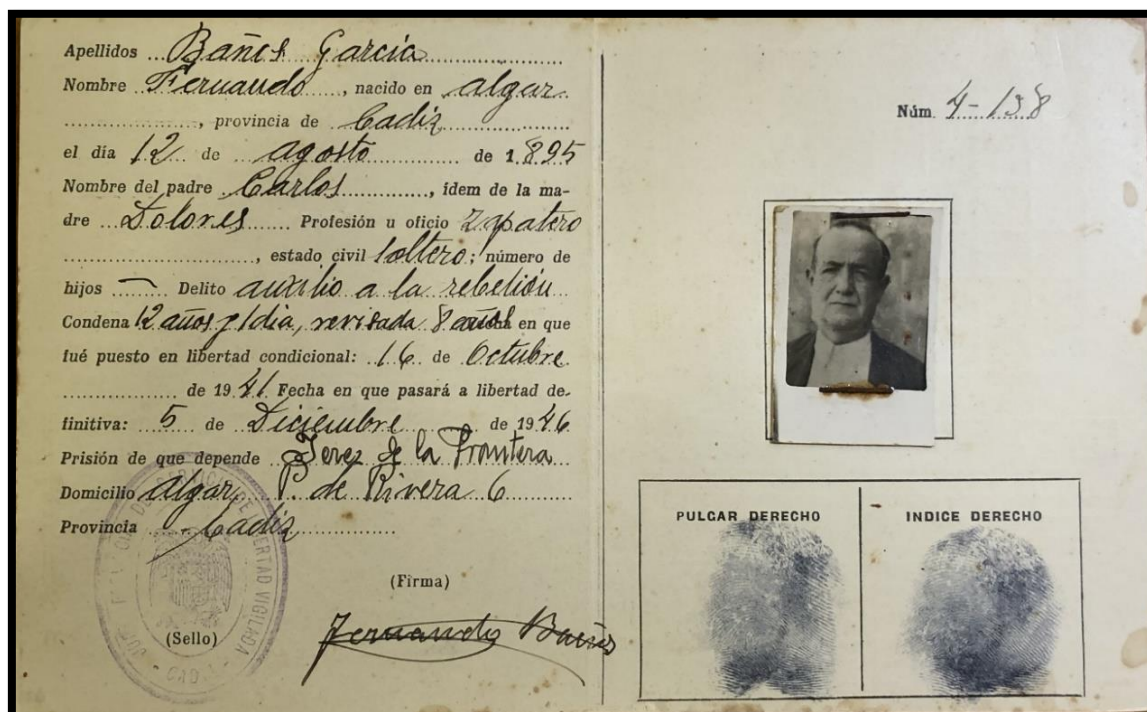 Apellidos Bañes Garcia
Nombre Fernando, nacido en algar
, provincia de Cadiz
el día 12 de agosto de 1.895
Nombre del padre Carlos, idem de la ma-
dre Dolores Profesión u oficio zapatero
, estado civil soltero; número de
hijos — Delito auxilio a la rebelión
Condena 12 años y 1 dia, revisada 8 años en que
fué puesto en libertad condicional: 16 de Octubre
de 1941 Fecha en que pasará a libertad de-
finitiva: 5 de Diciembre de 1946
Prisión de que depende Jerez de la Frontera
Domicilio Algar P. de Rivera 6
Provincia Cadiz
(Firma)
(Sello)
Fernando Bañes
LIBERTAD VIGILADA
Núm. 4-138
PULGAR DERECHO
INDICE DERECHO